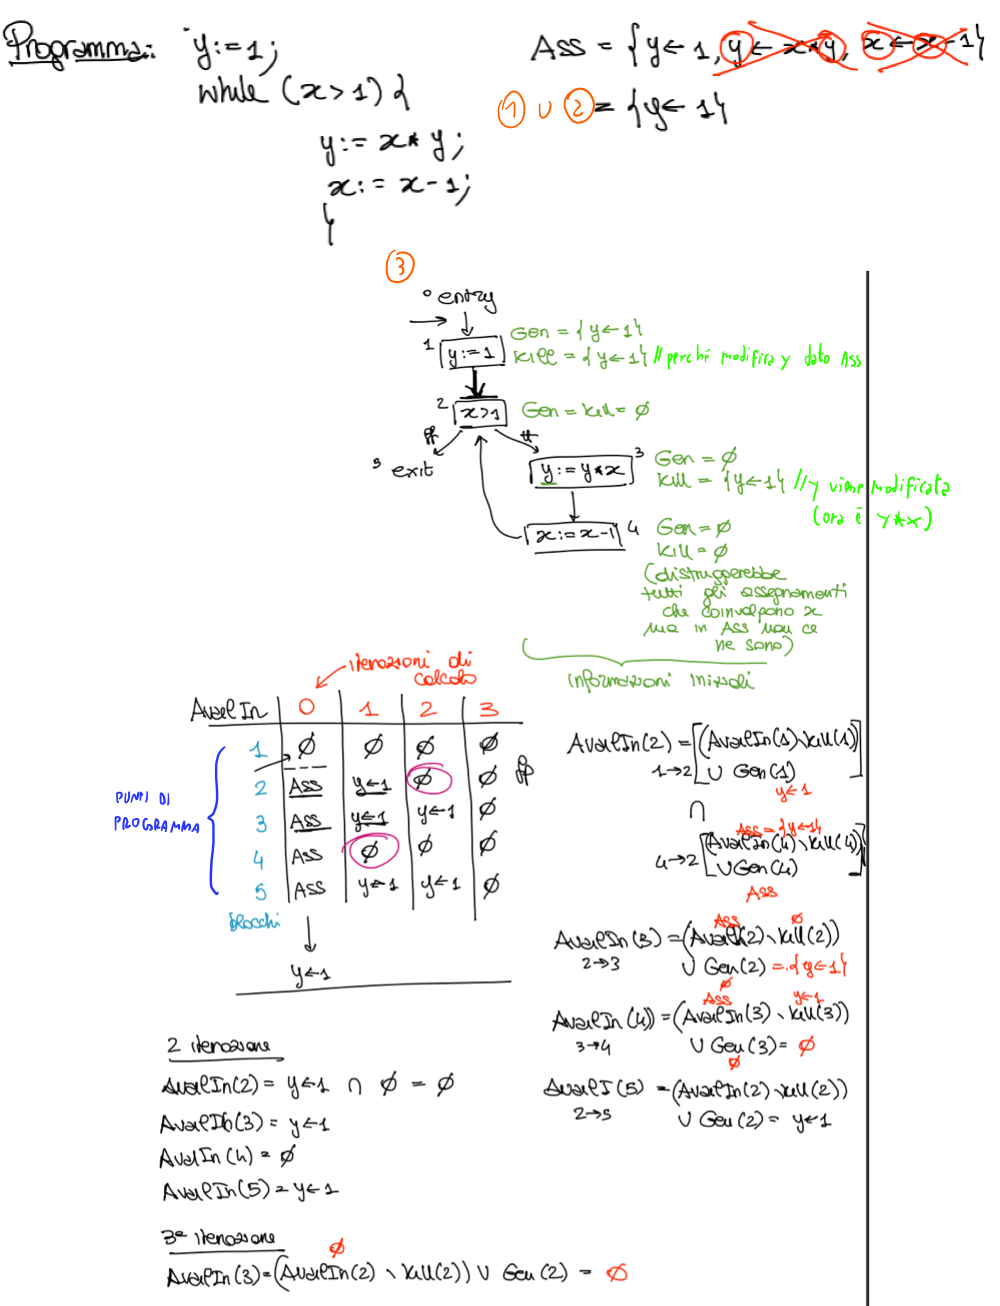 Programma: y:=1;
while (x>1) {
y:= x * y;
x:= x-1;
}
Ass = {y←1, y←x*y, x←x-1}
① ∪ ② = {y←1}
③
0 entry
1 y:=1
Gen = {y←1}
Kill = {y←1} // perché modifica y dato Ass
2 x>1 Gen = Kill = ∅
ff tt
5 exit
y:= y*x 3
Gen = ∅
Kill = {y←1} // y viene modificata
(ora è y*x)
x:= x-1 4
Gen = ∅
Kill = ∅
(distruggerebbe
tutti gli assegnamenti
che coinvolgono x
ma in Ass non ce
ne sono)
informazioni iniziali
iterazioni di
calcolo
AvailIn 0 1 2 3
1 ∅ ∅ ∅ ∅
2 Ass y←1 ∅ ∅ fp
3 Ass y←1 y←1 ∅
4 Ass ∅ ∅ ∅
5 Ass y←1 y←1 ∅
PUNTI DI
PROGRAMMA
blocchi
y←1
AvailIn(2) = [(AvailIn(1)\Kill(1))
1→2 ∪ Gen(1)]
y←1
∩
Ass = {y←1}
4→2 [(AvailIn(4)\Kill(4))
∪ Gen(4)]
Ass
Ass ∅
AvailIn(3) = (AvailIn(2)\Kill(2))
2→3 ∪ Gen(2) = {y←1}
∅
Ass y←1
AvailIn(4) = (AvailIn(3)\Kill(3))
3→4 ∪ Gen(3) = ∅
∅
AvailI(5) = (AvailIn(2)\Kill(2))
2→5 ∪ Gen(2) = y←1
2 iterazione
AvailIn(2) = y←1 ∩ ∅ = ∅
AvailIn(3) = y←1
AvailIn(4) = ∅
AvailIn(5) = y←1
3ª iterazione
∅
AvailIn(3) = (AvailIn(2)\Kill(2)) ∪ Gen(2) = ∅